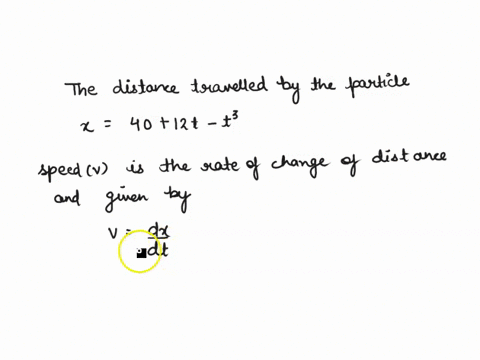 The distance travelled by the particle
x = 40 + 12t - t³
speed (v) is the rate of change of distance
and given by
v = dx
dt